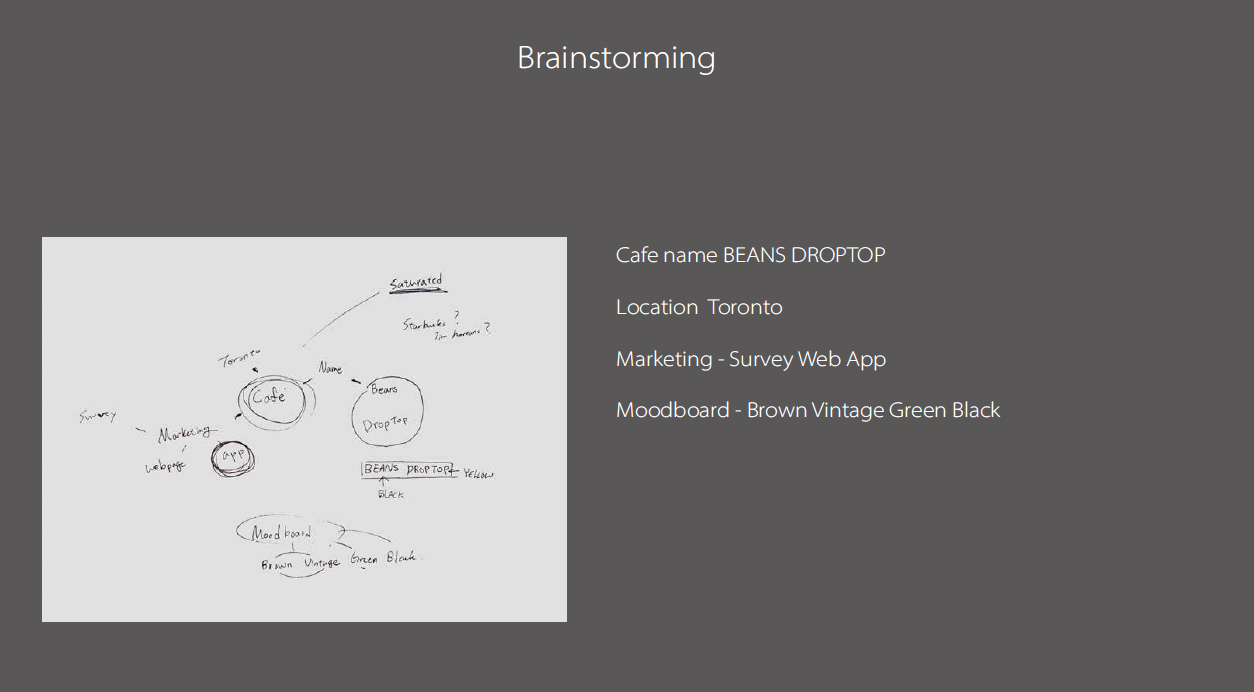 Brainstorming
Saturated
Starbucks ?
Tim hortons ?
Toronto
Name
Café
Beans
DropTop
Survey
Marketing
app
webpage
BEANS DROPTOP
YELLOW
BLACK
Moodboard
Brown Vintage Green Black
Cafe name BEANS DROPTOP
Location Toronto
Marketing - Survey Web App
Moodboard - Brown Vintage Green Black